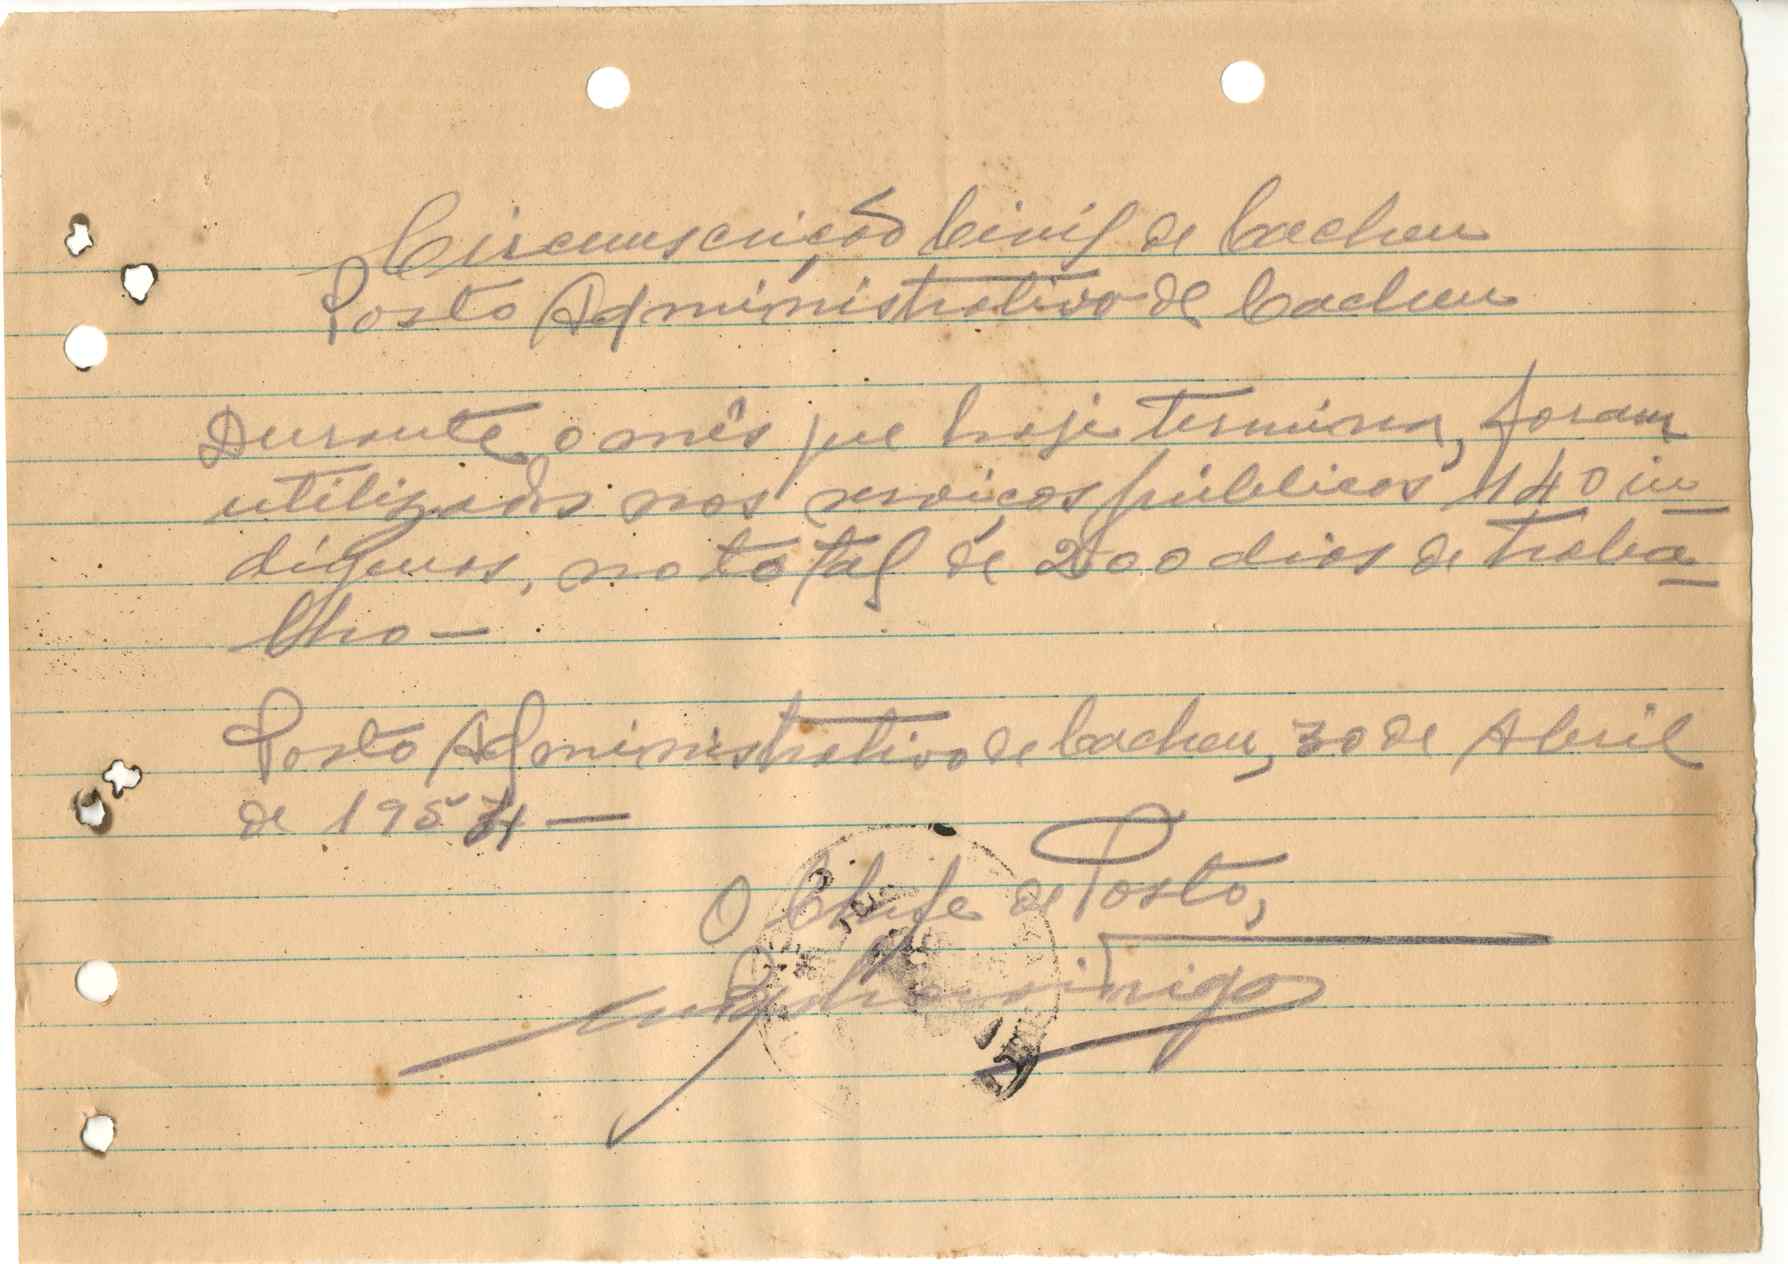 Circunscrição Civil de Cacheu
Posto Administrativo de Cacheu
Durante o mês que hoje termina, foram
utilizados nos serviços públicos 140 in
dígenas, no total de 200 dias de traba
lho —
Posto Administrativo de Cacheu, 30 de Abril
de 1954 —
O Chefe de Posto,